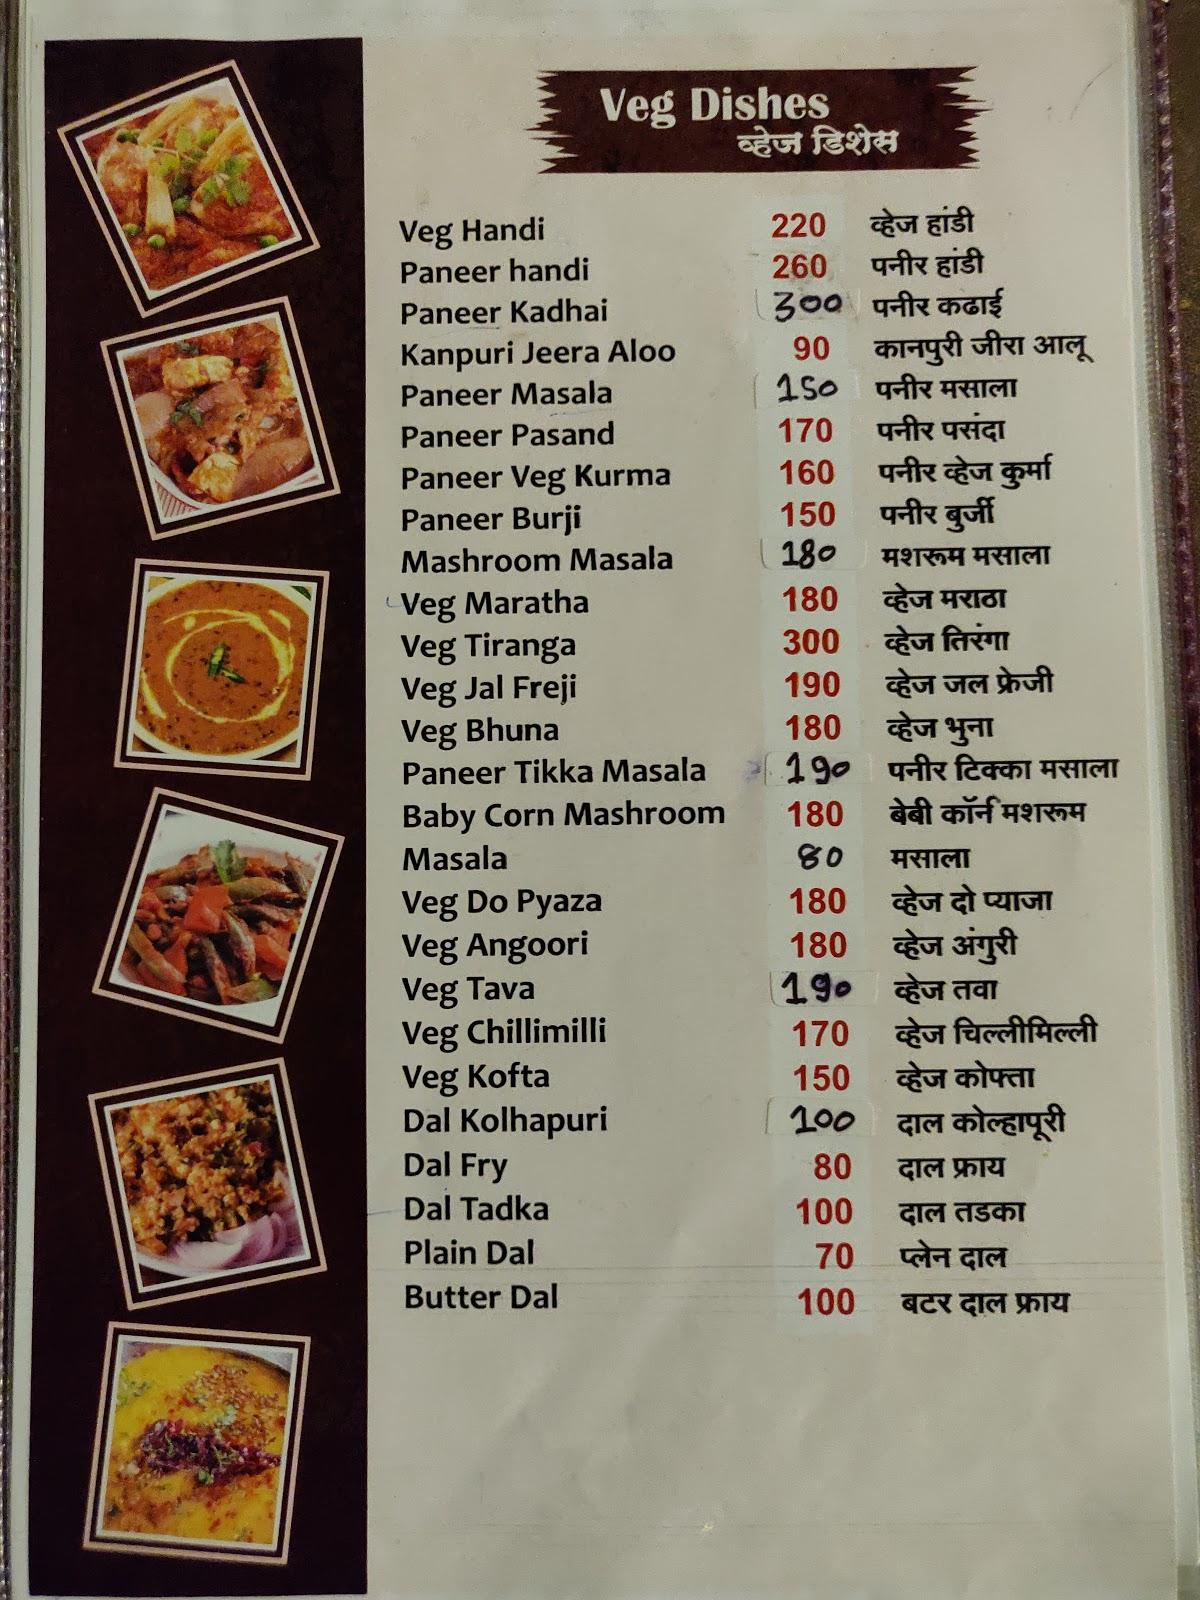 Veg Dishes
व्हेज डिशेस
Veg Handi 220 व्हेज हांडी
Paneer handi 260 पनीर हांडी
Paneer Kadhai 300 पनीर कढाई
Kanpuri Jeera Aloo 90 कानपुरी जीरा आलू
Paneer Masala 150 पनीर मसाला
Paneer Pasand 170 पनीर पसंदा
Paneer Veg Kurma 160 पनीर व्हेज कुर्मा
Paneer Burji 150 पनीर बुर्जी
Mashroom Masala 180 मशरूम मसाला
Veg Maratha 180 व्हेज मराठा
Veg Tiranga 300 व्हेज तिरंगा
Veg Jal Freji 190 व्हेज जल फ्रेजी
Veg Bhuna 180 व्हेज भुना
Paneer Tikka Masala 190 पनीर टिक्का मसाला
Baby Corn Mashroom 180 बेबी कॉर्न मशरूम
Masala 80 मसाला
Veg Do Pyaza 180 व्हेज दो प्याजा
Veg Angoori 180 व्हेज अंगुरी
Veg Tava 190 व्हेज तवा
Veg Chillimilli 170 व्हेज चिल्लीमिल्ली
Veg Kofta 150 व्हेज कोफ्ता
Dal Kolhapuri 100 दाल कोल्हापूरी
Dal Fry 80 दाल फ्राय
Dal Tadka 100 दाल तडका
Plain Dal 70 प्लेन दाल
Butter Dal 100 बटर दाल फ्राय